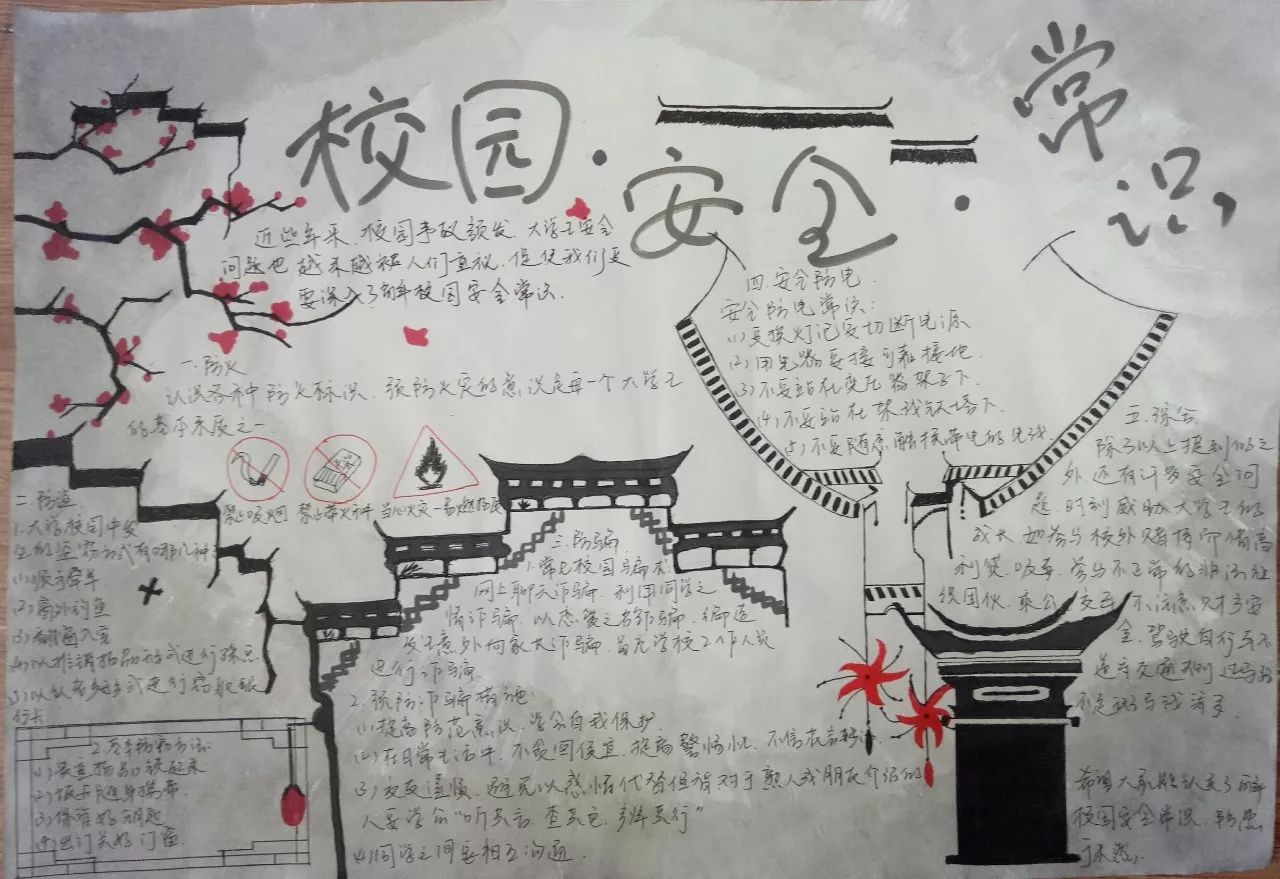 校园·安全·常识
近些年来,校园事故频发,大学生安全
问题也越来越被人们重视,促使我们更
要深入了解校园安全常识.
一.防火
认识各种防火标识,预防火灾的意识是每一个大学生
的基本素质之一.
禁止吸烟 禁止带火种 当心火灾—易燃物质
二.防盗
1.大学校园中发
生的盗窃方式有哪几种
(1)顺手牵羊
(2)窗外钓鱼
(3)翻窗入室
(4)以推销物品形式进行
行卡
2.
(1)贵重物品锁起来
(2)银卡随身携带
(3)保管好钥匙
(4)出门关好门窗.
三.防骗
1.常见校园骗术:
网上聊天诈骗,利用同学之
情诈骗,以恋爱之名诈骗,编造
发生意外向家长诈骗,冒充学校工作人员
进行诈骗.
2.预防诈骗措施:
(1)提高防范意识,学会自我保护
(2)在日常生活中,不贪图便宜,提高警惕性,不信
(3)交友谨慎,避免以感情代替 对于熟人或朋友介绍的
人要学会“听其言,查其色,辨其行”
(4)同学之间要相互沟通.
四.安全防电.
安全防电常识:
(1)更换灯泡要切断电源
(2)用电器要接可靠接地.
(3)不要站在变压器架子下
(4)不要站在架线铁塔下.
(5)不要随意触摸带电的电线
五.综合
除了以上提到的之
外,还有许多安全问
题,时刻威胁大学生的
成长,如参与校外赌博即借高
利贷,吸毒,参与不正常的非法社
组团伙,乘公交车不注意人才安
全,驾驶自行车不
遵守交通规则,过马路
不走斑马线等等.
希望大家能认真了解
校园安全常识,